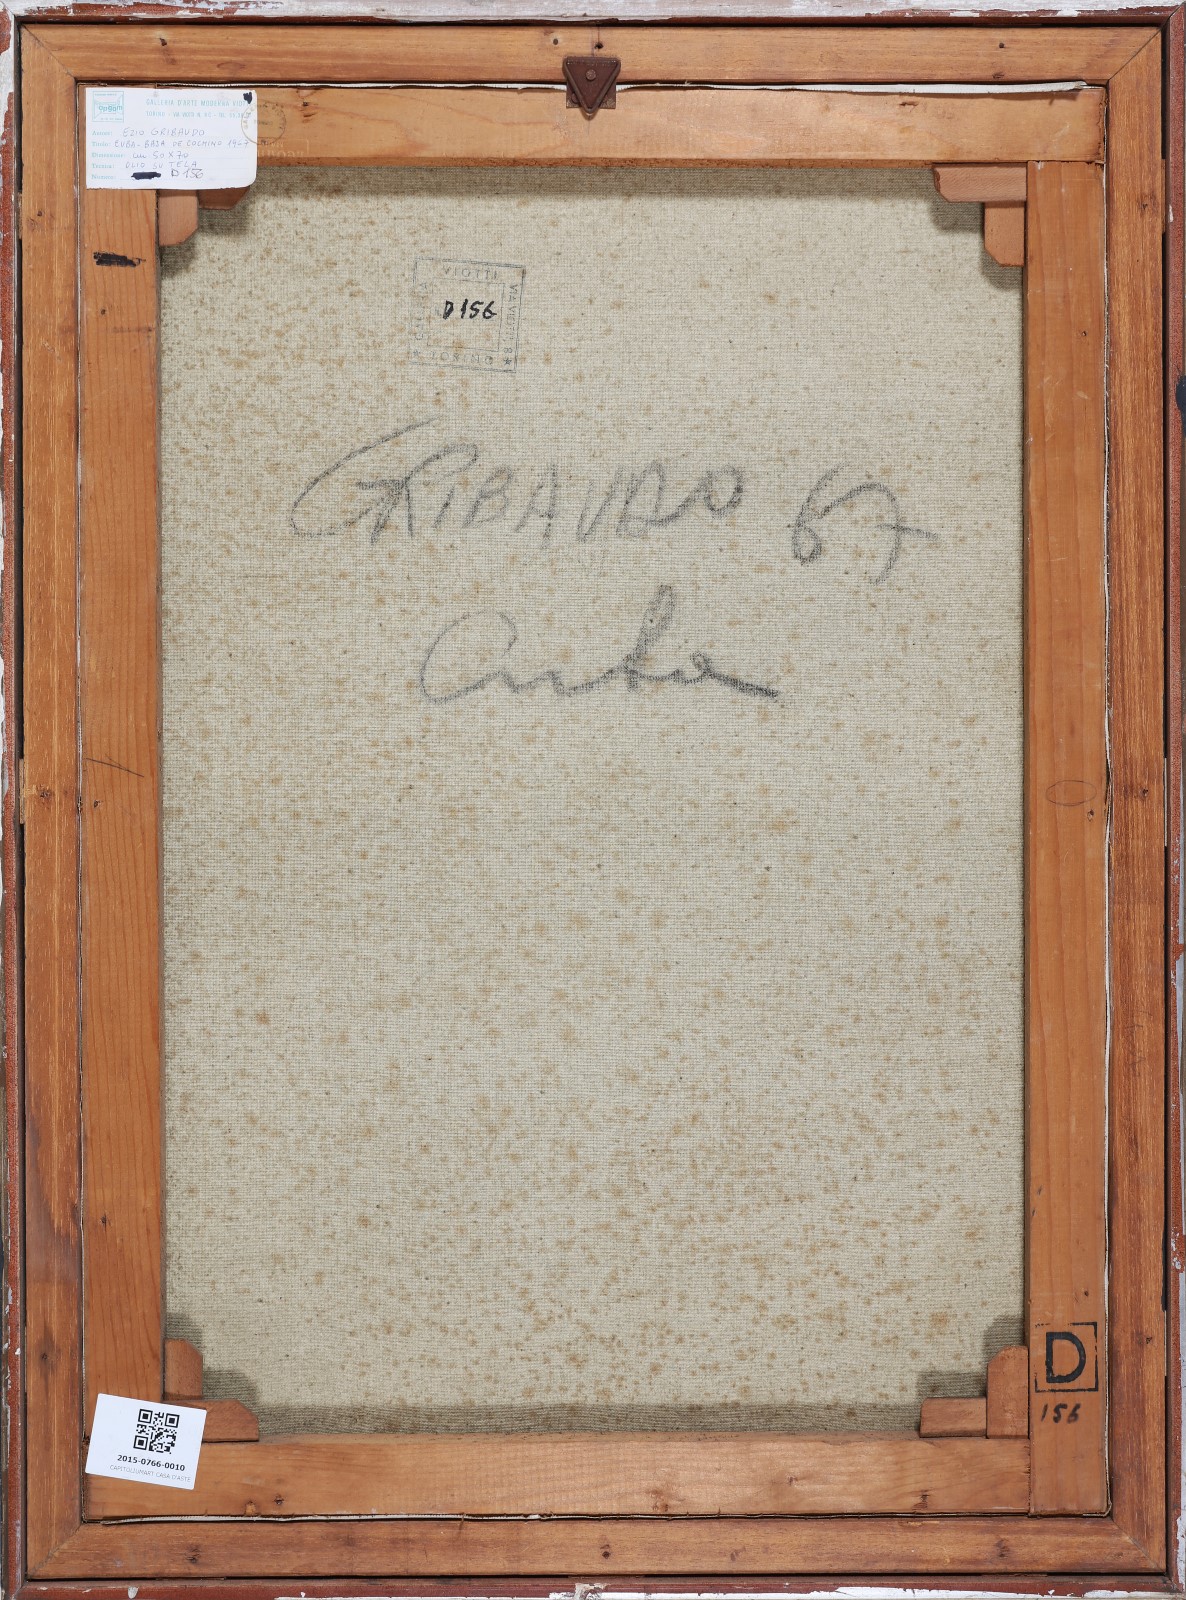 GALLERIA D'ARTE MODERNA VIOTTI
TORINO - VIA VIOTTI N. 8
Autore: EZIO GRIBAUDO
Titolo: CUBA - BAJA DE COCHINO 1967
Dimensioni: cm 50 X 70
Tecnica: OLIO SU TELA
D 156
VIOTTI
VIA VIOTTI 8
* TORINO *
D 156
GRIBAUDO 67
Cuba
D
156
2015-0766-0010
CAPITOLIUMART CASA D'ASTE